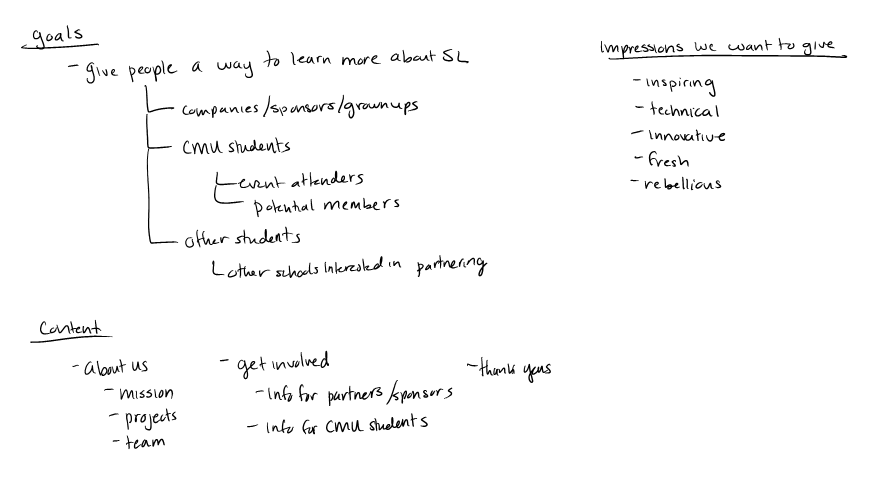 goals
- give people a way to learn more about SL
companies/sponsors/grownups
CMU students
event attenders
potential members
other students
other schools interested in partnering
Impressions we want to give
- inspiring
- technical
- innovative
- fresh
- rebellious
Content
- About us
- mission
- projects
- team
- get involved
- Info for partners/sponsors
- Info for CMU students
- thank yous